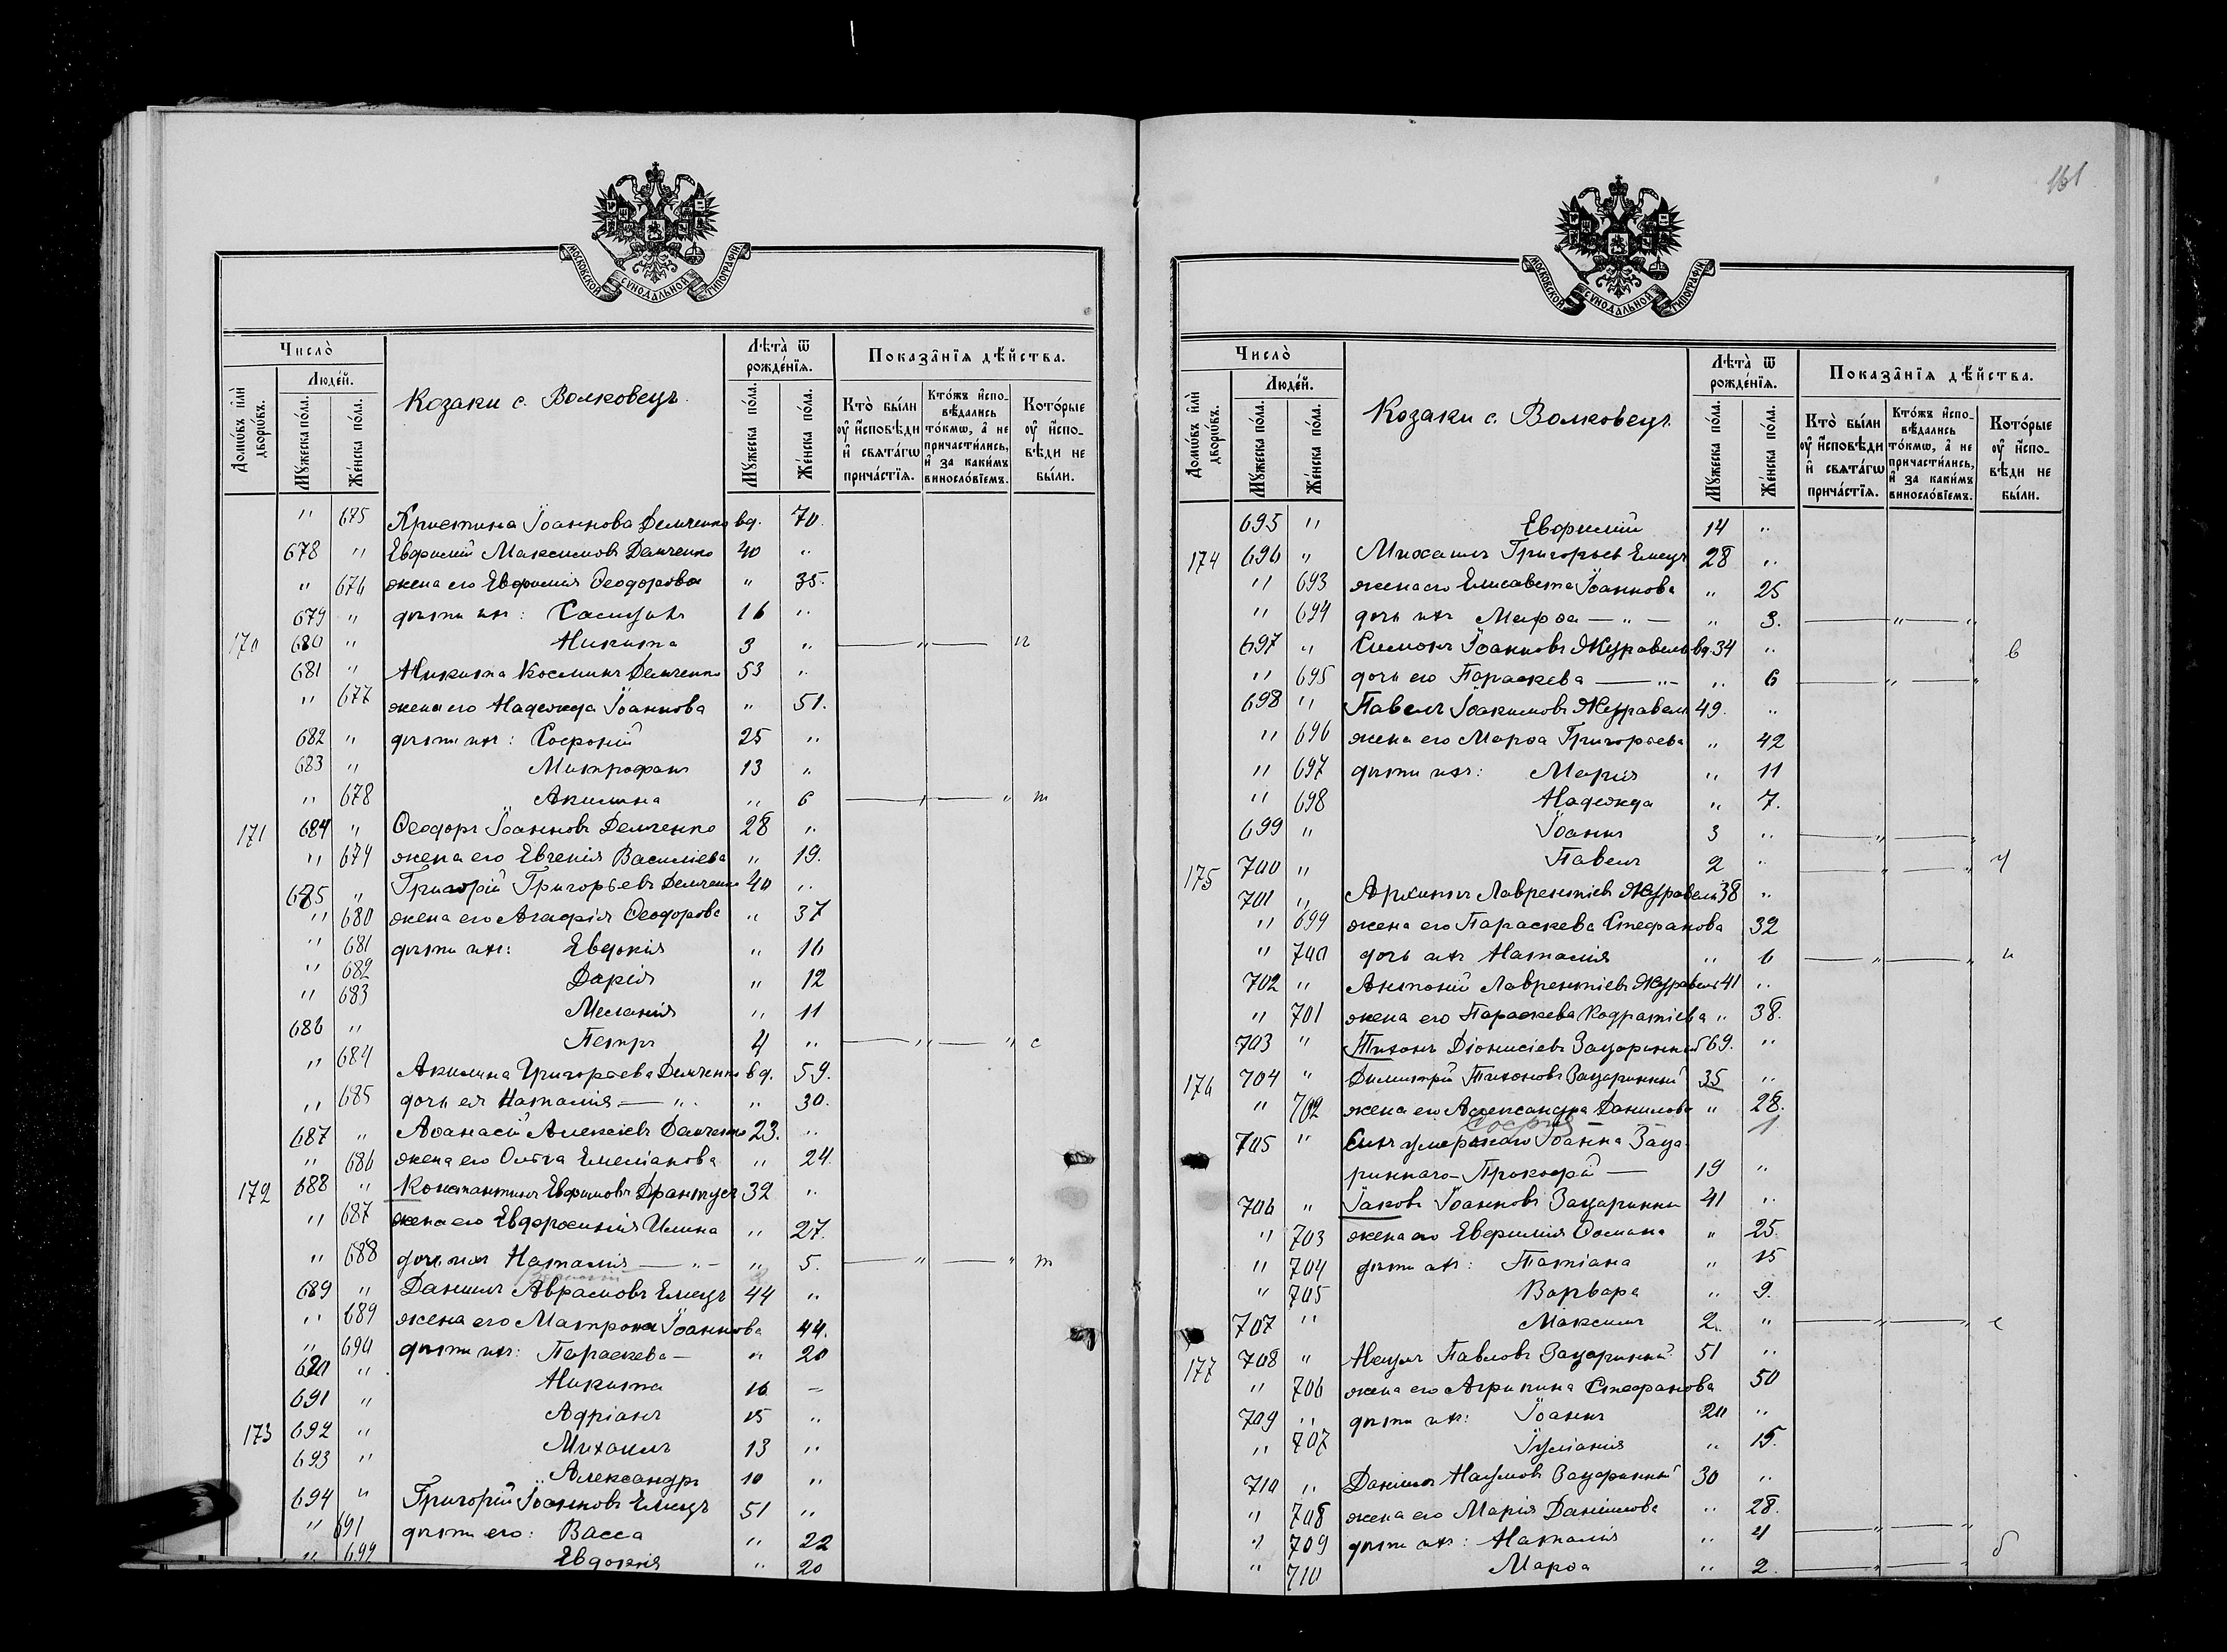 161
МОСКОВСКОЙ СУНОДАЛЬНОЙ ТИПОГРАФІИ
Число̀
Людей.
Домѡвъ и҆лѝ дворѡвъ.
Мꙋжеска по́ла.
Же́нска по́ла.
Козаки с. Волковецъ.
Лѣта̀ ѿ рожде́нїѧ.
Мꙋжеска по́ла.
Же́нска по́ла.
Показа̑нїѧ дѣ́йства.
Кто̀ бы́ли оу҆ и҆спо́вѣди и҆ свѧта́гѡ прича́стїѧ.
Кто́жъ и҆спо- вѣ́дались то́кмѡ, а҆ не причасти́лись, и҆ за каки́мъ винослѡ́вїемъ.
Кото́рые оу҆ и҆спо- вѣди не бы́ли.
" 675 Христина Іоаннова Демченко вд. 70.
678 " Евфимій Максимовъ Демченко 40 "
" 676 жена его Евфимія Ѳеодорова " 35.
679 " дѣти ихъ: 16 "
170 680 " Никита 3 " — " — и
681 " Никита Косминъ Демченко 53 "
" 677 жена его Надежда Іоаннова " 51.
682 " дѣти ихъ: Софроній 25 "
683 " Митрофанъ 13 "
" 678 Акилина " 6 — " — " т
171 684 " Ѳеодоръ Іоанновъ Демченко 28 "
" 679 жена его Евгенія Василіева " 19.
685 " Григорій Григорьевъ Демченко 40 "
" 680 жена его Агафія Ѳеодорова " 37
" 681 дѣти ихъ: Евдокія " 16
" 682 Дарія " 12
" 683 Меланія " 11
686 " Петръ 4 " — " — " с
" 684 Акилина Григорьева Демченко вд. 59.
" 685 дочь ея Наталія — " " 30.
687 " Аѳанасій Алексіевъ Демченко 23. "
" 686 жена его Ольга Емеліанова " 24.
172 688 " Константинъ Евфимовъ Драптусъ 32 "
" 687 жена его Евфросинія Ильина " 27.
" 688 дочь ихъ Наталія — " — " 5. — " — " т
689 " Даніилъ Аврамовъ Емецъ 44 "
" 689 жена его Матрона Іоаннова 44.
" 690 дѣти ихъ: Параскева — " 20
690 " Никита 16 —
691 " Адріанъ 15 "
173 692 " Михаилъ 13 "
693 " Александръ 10 "
694 " Григорій Іоанновъ Емецъ 51 "
" 691 дѣти его: Васса " 22
" 692 Евдокія " 20
МОСКОВСКОЙ СУНОДАЛЬНОЙ ТИПОГРАФІИ
Число̀
Людей.
Домѡвъ и҆лѝ дворѡвъ.
Мꙋжеска по́ла.
Же́нска по́ла.
Козаки с. Волковецъ.
Лѣта̀ ѿ рожде́нїѧ.
Мꙋжеска по́ла.
Же́нска по́ла.
Показа̑нїѧ дѣ́йства.
Кто̀ бы́ли оу҆ и҆спо́вѣди и҆ свѧта́гѡ прича́стїѧ.
Кто́жъ и҆спо- вѣ́дались то́кмѡ, а҆ не причасти́лись, и҆ за каки́мъ винослѡ́вїемъ.
Кото́рые оу҆ и҆спо- вѣди не бы́ли.
695 " Евфимій 14 "
174 696 " Михаилъ Григорьевъ Емецъ 28 "
" 693 жена его Елисавета Іоаннова " 25
" 694 дочь ихъ Марѳа — " — " 3. — " — "
697 " Симонъ Іоанновъ Журавель вд 34 " в
" 695 дочь его Параскева — " " 6 — " — "
698 " Павелъ Іоакимовъ Журавель 49. "
" 696 жена его Марѳа Григорьева " 42
" 697 дѣти ихъ: Марія " 11
" 698 Надежда " 7.
699 " Іоаннъ 3 " — " — "
175 700 " Павелъ 2 " — " — ч
701 " Архипъ Лаврентіевъ Журавель 38 "
" 699 жена его Параскева Стефанова 32
" 700 дочь ихъ Наталія " 6 — " — " и
702 " Антоній Лаврентіевъ Журавель 41 "
" 701 жена его Параскева Кодратіева " 38.
703 " Тихонъ Діонисіевъ Зацаринный 69. "
176 704 " Димитрій Тихоновъ Зацаринный 35 "
" 702 жена его Александра Данилова " 28.
Софія 1
705 " Сынъ умершаго Іоанна Заца-
риннаго — Прокофій — 19 "
706 " Іаковъ Іоанновъ Зацаринный 41 "
" 703 жена его Евфимія Ѳомина " 25
" 704 дѣти ихъ: Татіана " 15
" 705 Варвара " 9.
707 " Максимъ 2. " — " — " с
177 708 " Наумъ Павловъ Зацаринный 51 "
" 706 жена его Агрипина Стефанова 50
709 " дѣти ихъ: Іоаннъ 20 "
" 707 Іуліанія " 15.
710 " Даніилъ Наумовъ Зацаринный 30 "
" 708 жена его Марія Даніилова " 28.
" 709 дѣти ихъ: Наталія " 4 — " — "
" 710 Марѳа " 2. — " — " б